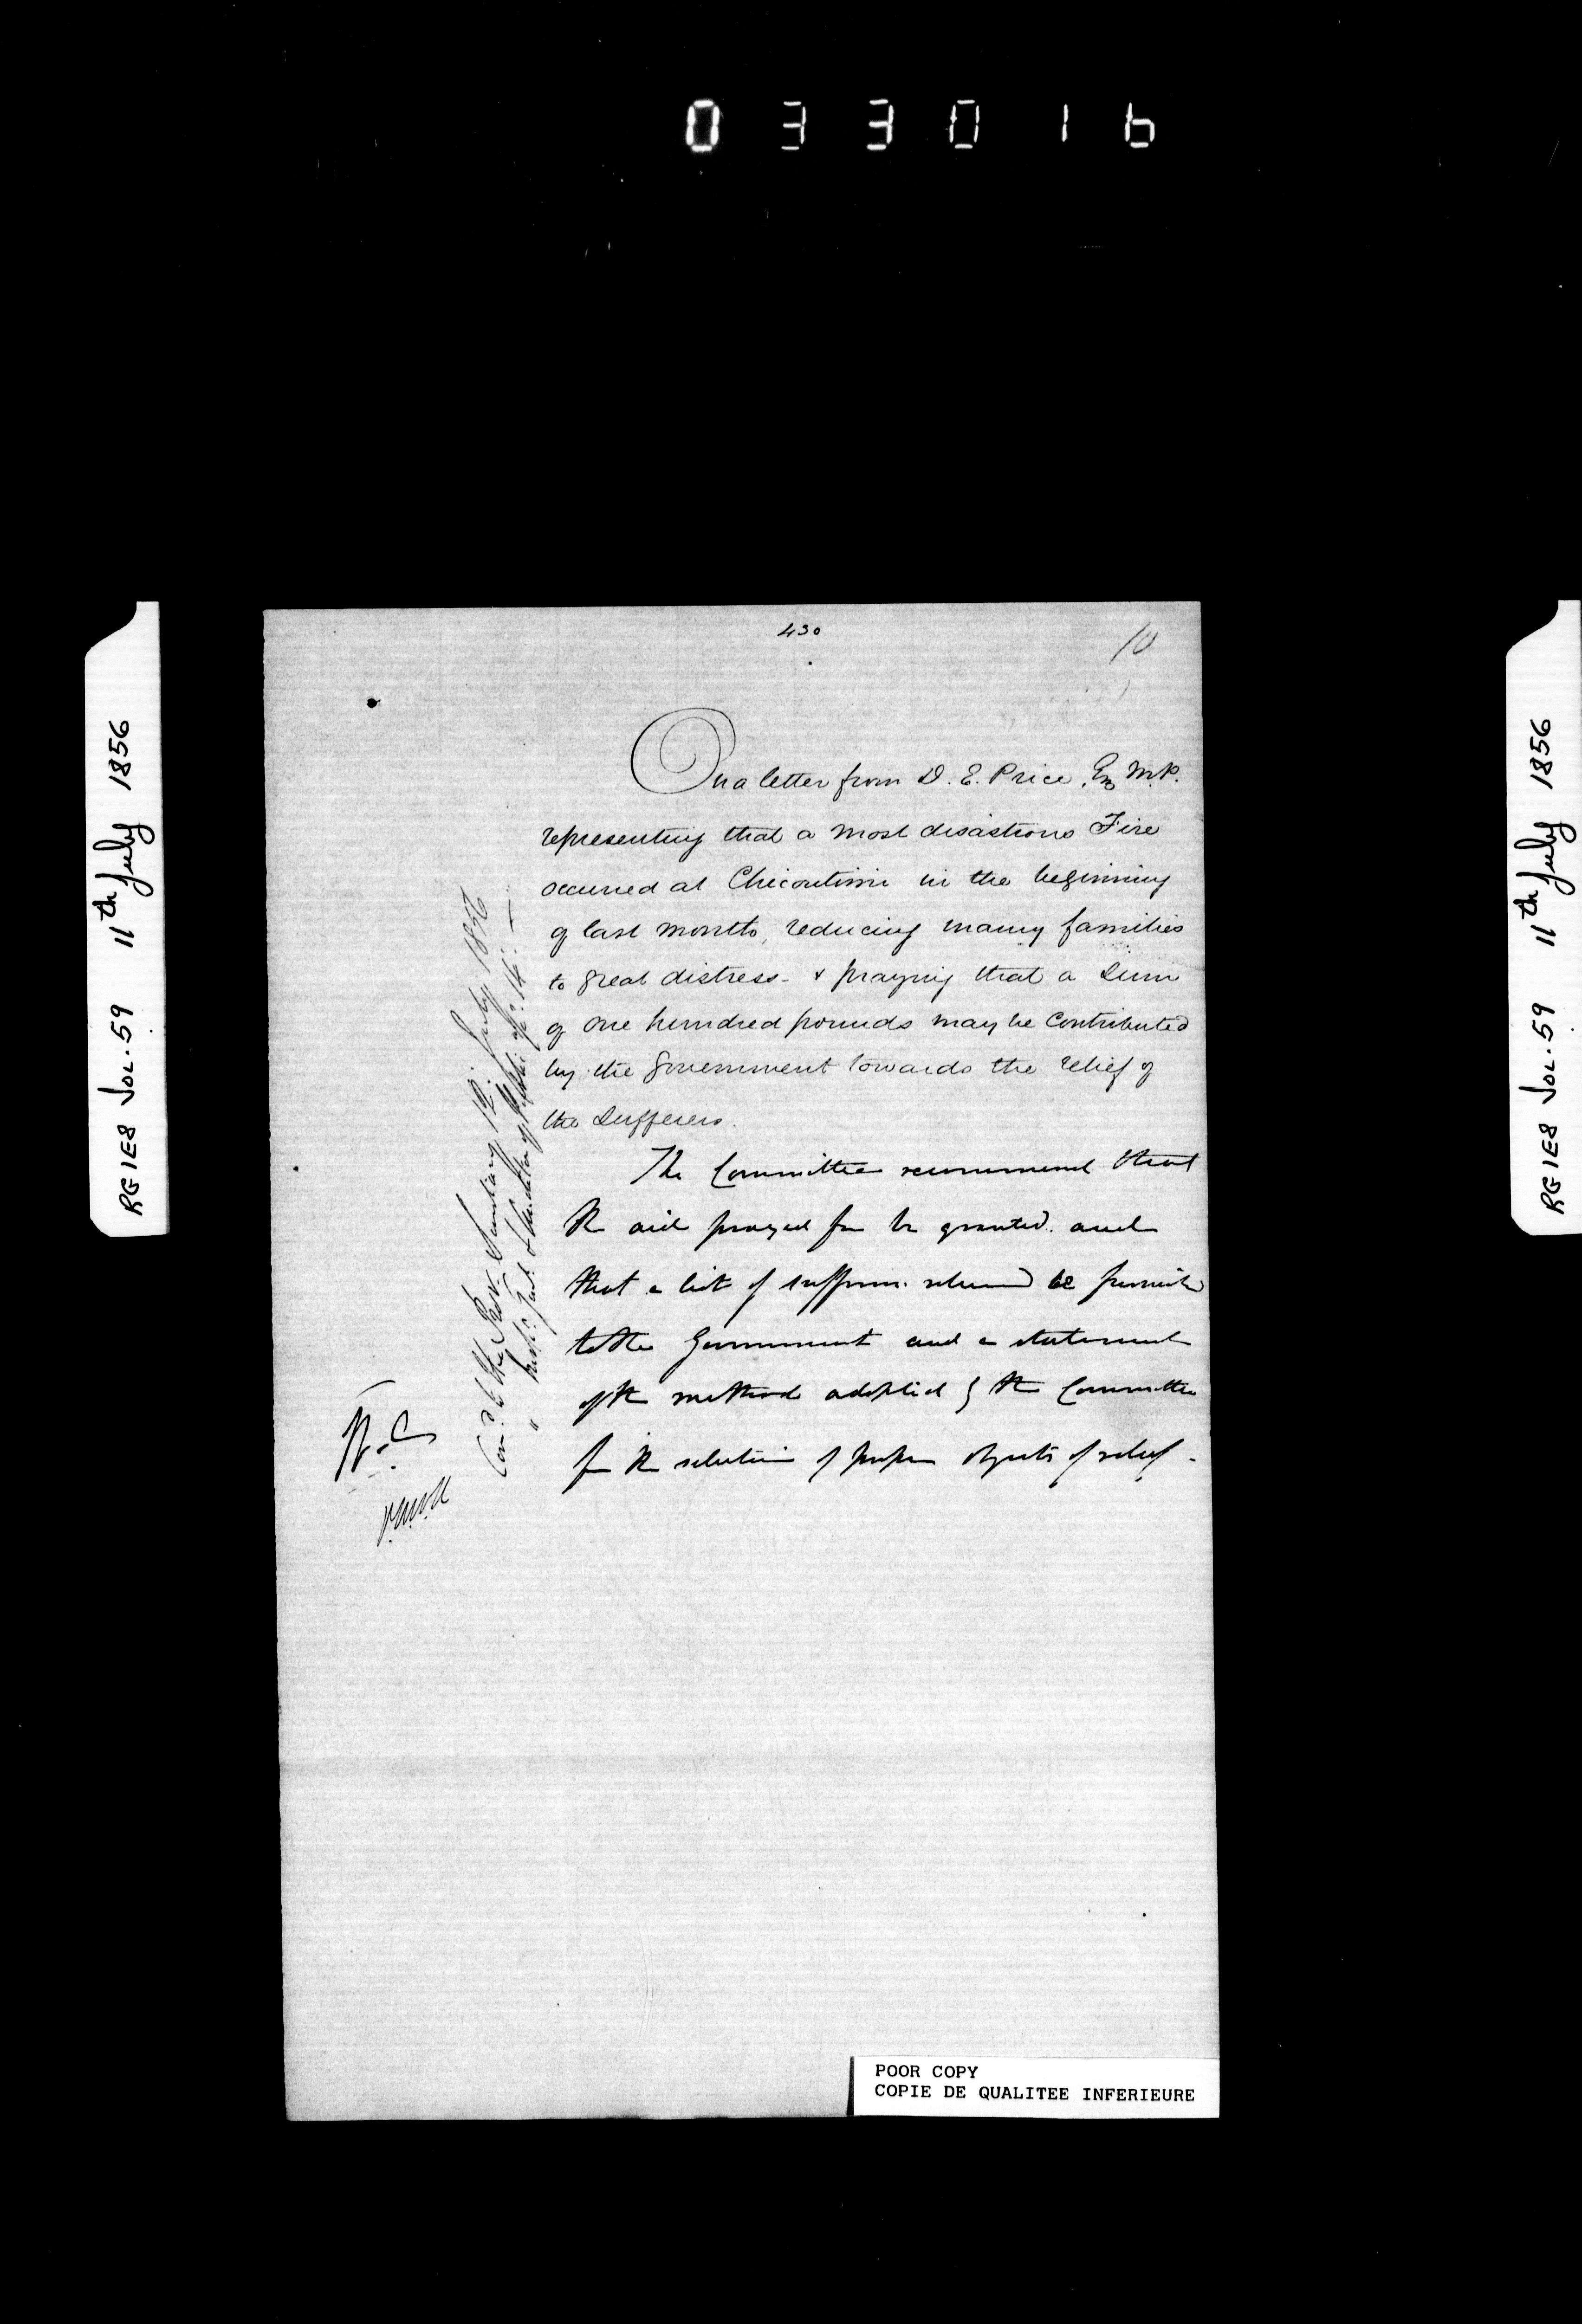 033016
RG1E8 VOL.59 11th July 1856
430
10
On a letter from D. E. Price, Esq M.P.
representing that a most disastrous Fire
occurred at Chicoutimi in the beginning
of last month, reducing many families
to great distress - & praying that a Sum
of one hundred pounds may be Contributed
by the Government towards the relief of
the Sufferers.
The Committee recommend that
the aid prayed for be granted and
that a list of sufferers relieved be furnished
to the Government and a statement
of the method adopted by the Committee
for the selection of proper objects of relief -
Com.d to the Prov. Secretary 12. July 1856
" Insp.r Genl. & Auditor of
RG1E8 VOL.59 11th July 1856
POOR COPY
COPIE DE QUALITEE INFERIEURE